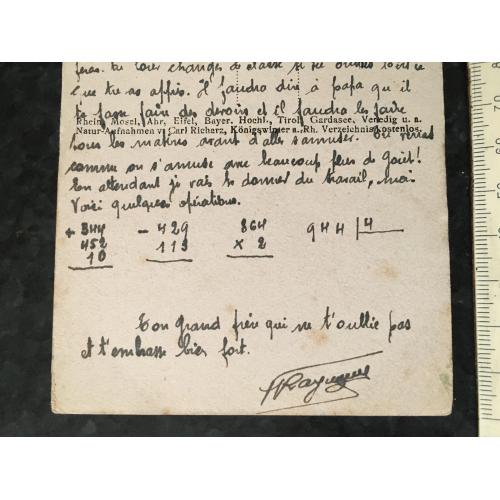 feras. tu vas changer de classe si tu
que tu as appris. Il faudra dire à papa qu'il
te fasse faire des devoirs et il faudra les faire
Rhein, Mosel, Ahr, Eifel, Bayer. Hochl., Tirol, Gardasee, Venedig u. a.
Natur-Aufnahmen v. Carl Richerz, Königswinter a. Rh. Verzeichnis kostenlos.
tous les matins avant d'aller s'amuser. Tu verras
comme on s'amuse avec beaucoup plus de goût!
En attendant je vais te donner du travail, mais
Voici quelques opérations.
+ 344 - 429 864 944 | 4
452 113 x 2
10
Ton grand frère qui ne t'oublie pas
et t'embrasse bien fort.